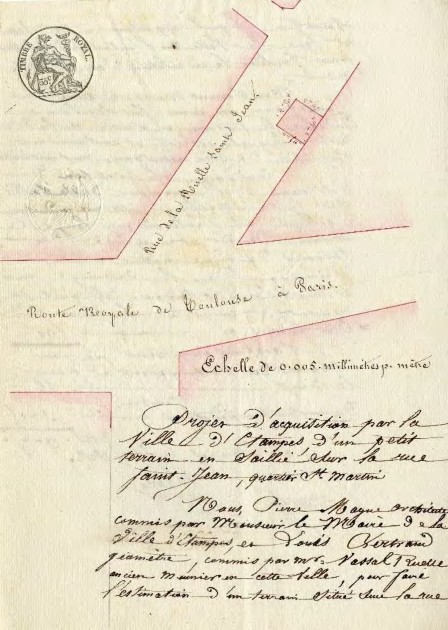 TIMBRE ROYAL
35c
Rue de la Ruelle Saint Jean.
Route Royale de Toulouse à Paris.
Echelle de 0.005. millimètres p. mètre
Projet d'acquisition par la
Ville d'Etampes d'un petit
terrain en Saillie sur la rue
Saint-Jean, quartier St Martin
Nous, Pierre Magne architecte
commis par Monsieur le Maire de la
Ville d'Etampes, et Louis Bertrand
géomètre, commis par Mr. Vassal
ancien meunier en cette ville, pour faire
l'estimation d'un terrain situé sur la rue